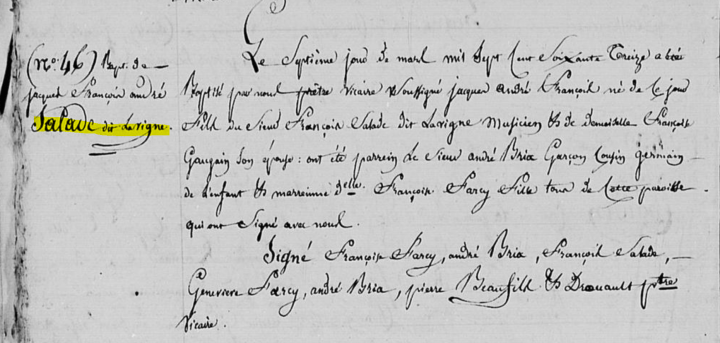 (No. 46) Bapt. de
jacques françois andré
Salade dit Lavigne.
Le Septième jour de mars mil Sept Cent Soixante Treize a été
Baptisé par nous prêtre vicaire Soussigné jacques andré François né de ce jour
fils du Sieur François Salade dit Lavigne Musicien & de demoiselle Françoise
Gaugain Son épouse : ont été parrein le Sieur andré Bria Garçon Cousin germain
de l'enfant & marreinne delle. Françoise Farcy fille tous de Cette paroisse.
qui ont Signé avec nous.
Signé Françoise Farcy, andré Bria, François Salade,
Genevieve Farcy, andré Bria, pierre Beaufils & Drouault ptre
Vicaire.